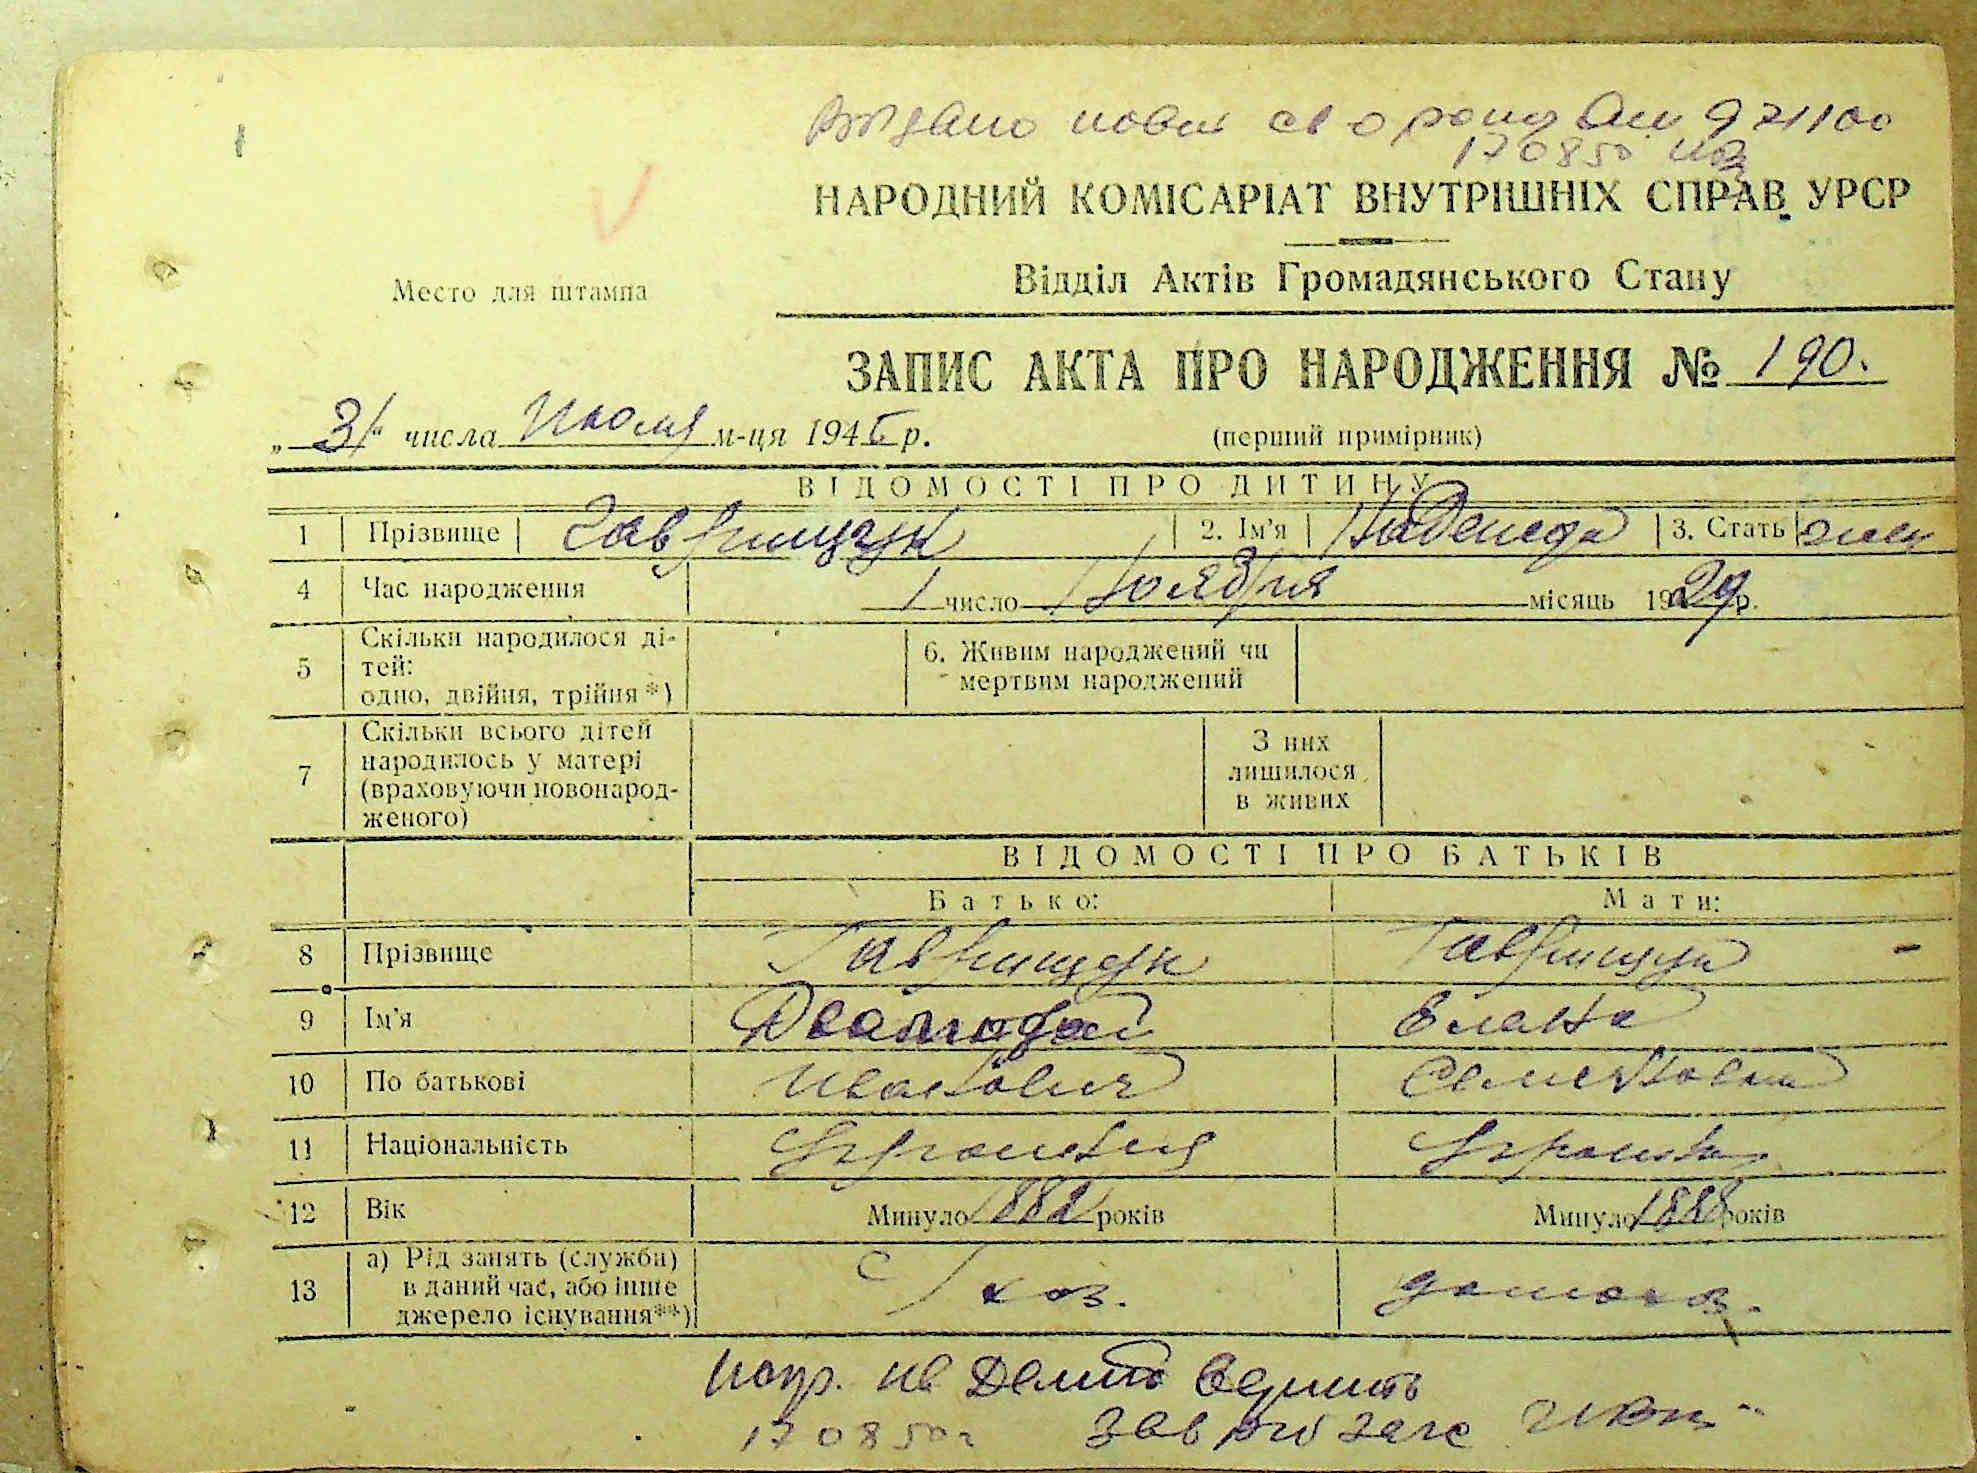 Видано нове св о рожд 971100
170850
НАРОДНИЙ КОМІСАРІАТ ВНУТРІШНІХ СПРАВ УРСР
Место для штампа
Відділ Актів Громадянського Стану
ЗАПИС АКТА ПРО НАРОДЖЕННЯ № 190.
„31“ числа Июля м-ця 1945 р.
(перший примірник)
ВІДОМОСТІ ПРО ДИТИНУ
1 Прізвище Гаврищук 2. Ім'я Надежда 3. Стать жен
4 Час народження 1 число Ноября місяць 1929 р.
5 Скільки народилося дітей: одно, двійня, трійня*) 6. Живим народжений чи мертвим народжений
7 Скільки всього дітей народилось у матері (враховуючи новонародженого) З них лишилося в живих
ВІДОМОСТІ ПРО БАТЬКІВ
Батько: Мати:
8 Прізвище Гаврищук Гаврищук
9 Ім'я Елена
10 По батькові Иванович Семеновна
11 Національність Украинец Украинка
12 Вік Минуло 1882 років Минуло 1888 років
13 а) Рід занять (служби) в даний час, або інше джерело існування**) С/хоз. домохоз.
испр. не верить
170850 г Зав рай загс